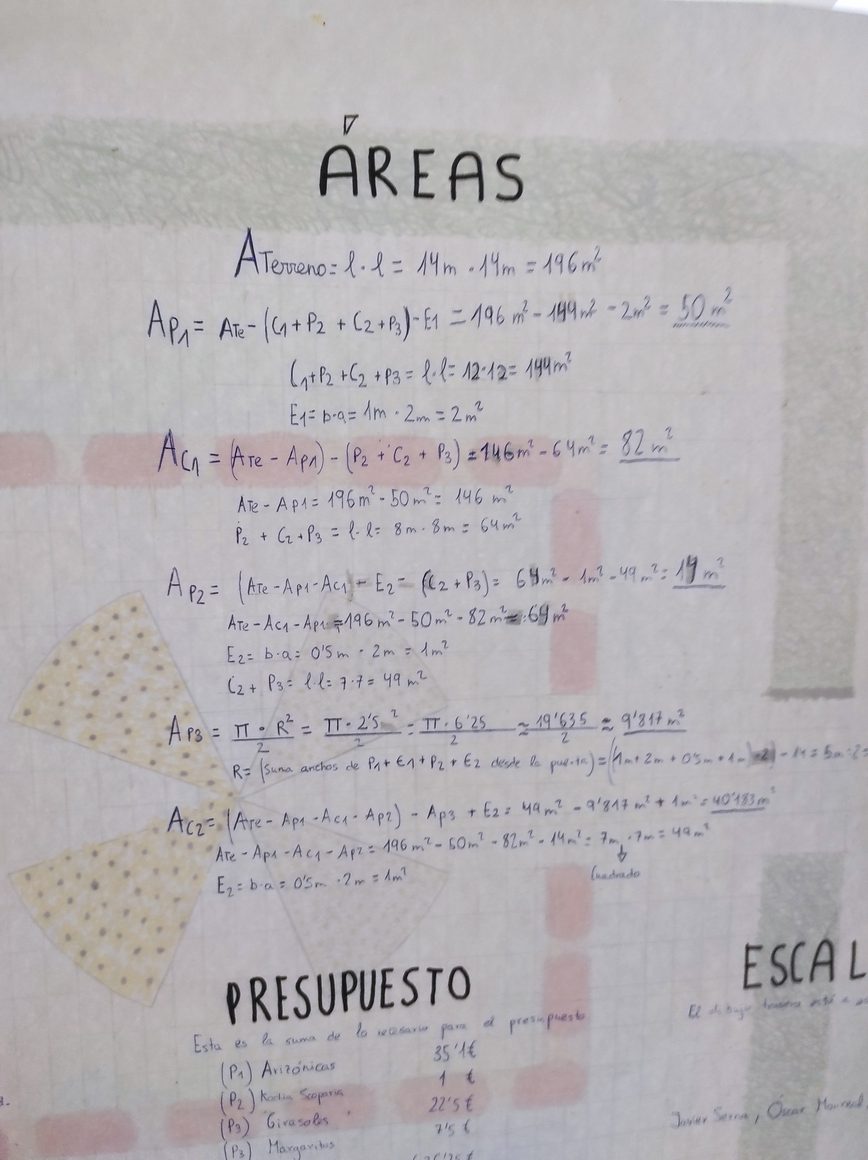 ÁREAS
ATerreno = l · l = 14m · 14m = 196 m²
AP1 = ATe - (C1 + P2 + C2 + P3) - E1 = 196 m² - 144 m² - 2m² = 50 m²
C1 + P2 + C2 + P3 = l · l = 12 · 12 = 144 m²
E1 = b · a = 1m · 2m = 2m²
AC1 = (ATe - AP1) - (P2 + C2 + P3) = 146 m² - 64 m² = 82 m²
ATe - AP1 = 196 m² - 50 m² = 146 m²
P2 + C2 + P3 = l · l = 8m · 8m = 64 m²
AP2 = (ATe - AP1 - AC1) - E2 - (C2 + P3) = 64 m² - 1m² - 49 m² = 14 m²
ATe - AC1 - AP1 = 196 m² - 50 m² - 82 m² = 64 m²
E2 = b · a = 0'5 m · 2m = 1m²
C2 + P3 = l · l = 7 · 7 = 49 m²
AP3 = π · R² / 2 = π · 2'5² / 2 = π · 6'25 / 2 ≈ 19'635 / 2 ≈ 9'817 m²
R = (Suma anchos de P1 + E1 + P2 + E2 desde la puerta) = (1m + 2m + 0'5m + 1m) - 14 = 5m
AC2 = (ATe - AP1 - AC1 - AP2) - AP3 + E2 = 49 m² - 9'817 m² + 1m² = 40'183 m²
ATe - AP1 - AC1 - AP2 = 196 m² - 50 m² - 82 m² - 14 m² = 7m · 7m = 49 m²
Cuadrado
E2 = b · a = 0'5 m · 2m = 1m²
PRESUPUESTO
ESCAL
Esta es la suma de lo necesario para el presupuesto
El dibujo
(P1) Arizónicas 35'1€
(P2) Kochia Scoparia 1 €
(P3) Girasoles 22'5 €
(P3) Margaritas 7'5 €
Javier Serna, Óscar